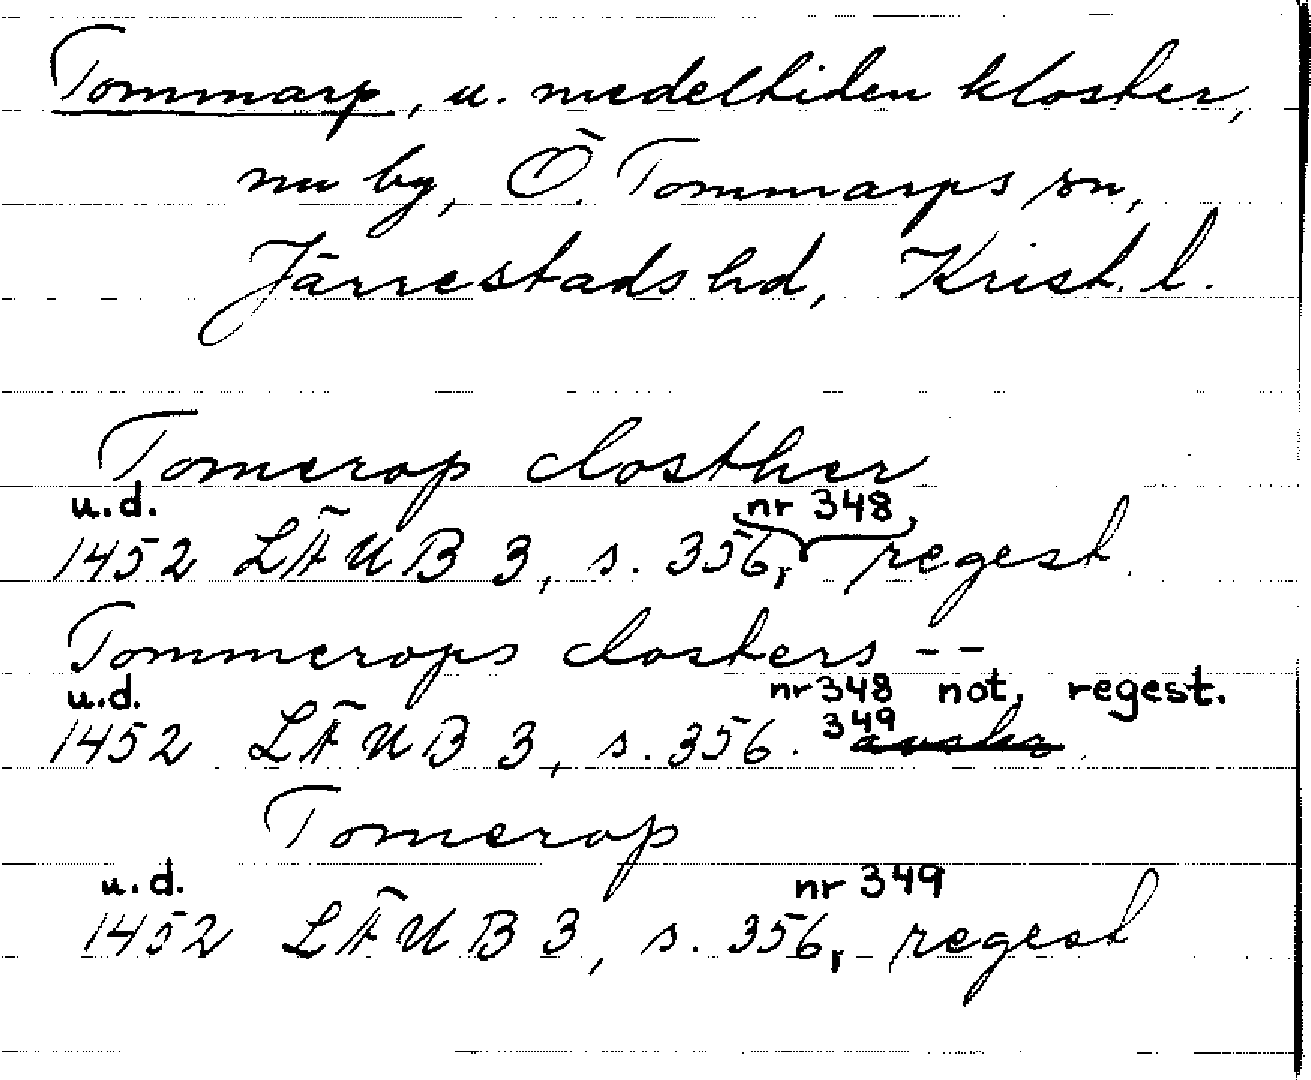 Tommarp, u. medeltiden kloster,
nu by, Ö. Tommarps sn,
Järrestads hd, Krist. l.
Tomerop closther
u.d. nr 348
1452 LÄUB 3, s. 356, regest.
Tommerops closters --
u.d. nr 348 not. regest.
1452 LÄUB 3, s. 356. 349 avskr.
Tomerop
u.d. nr 349
1452 LÄUB 3, s. 356, regest